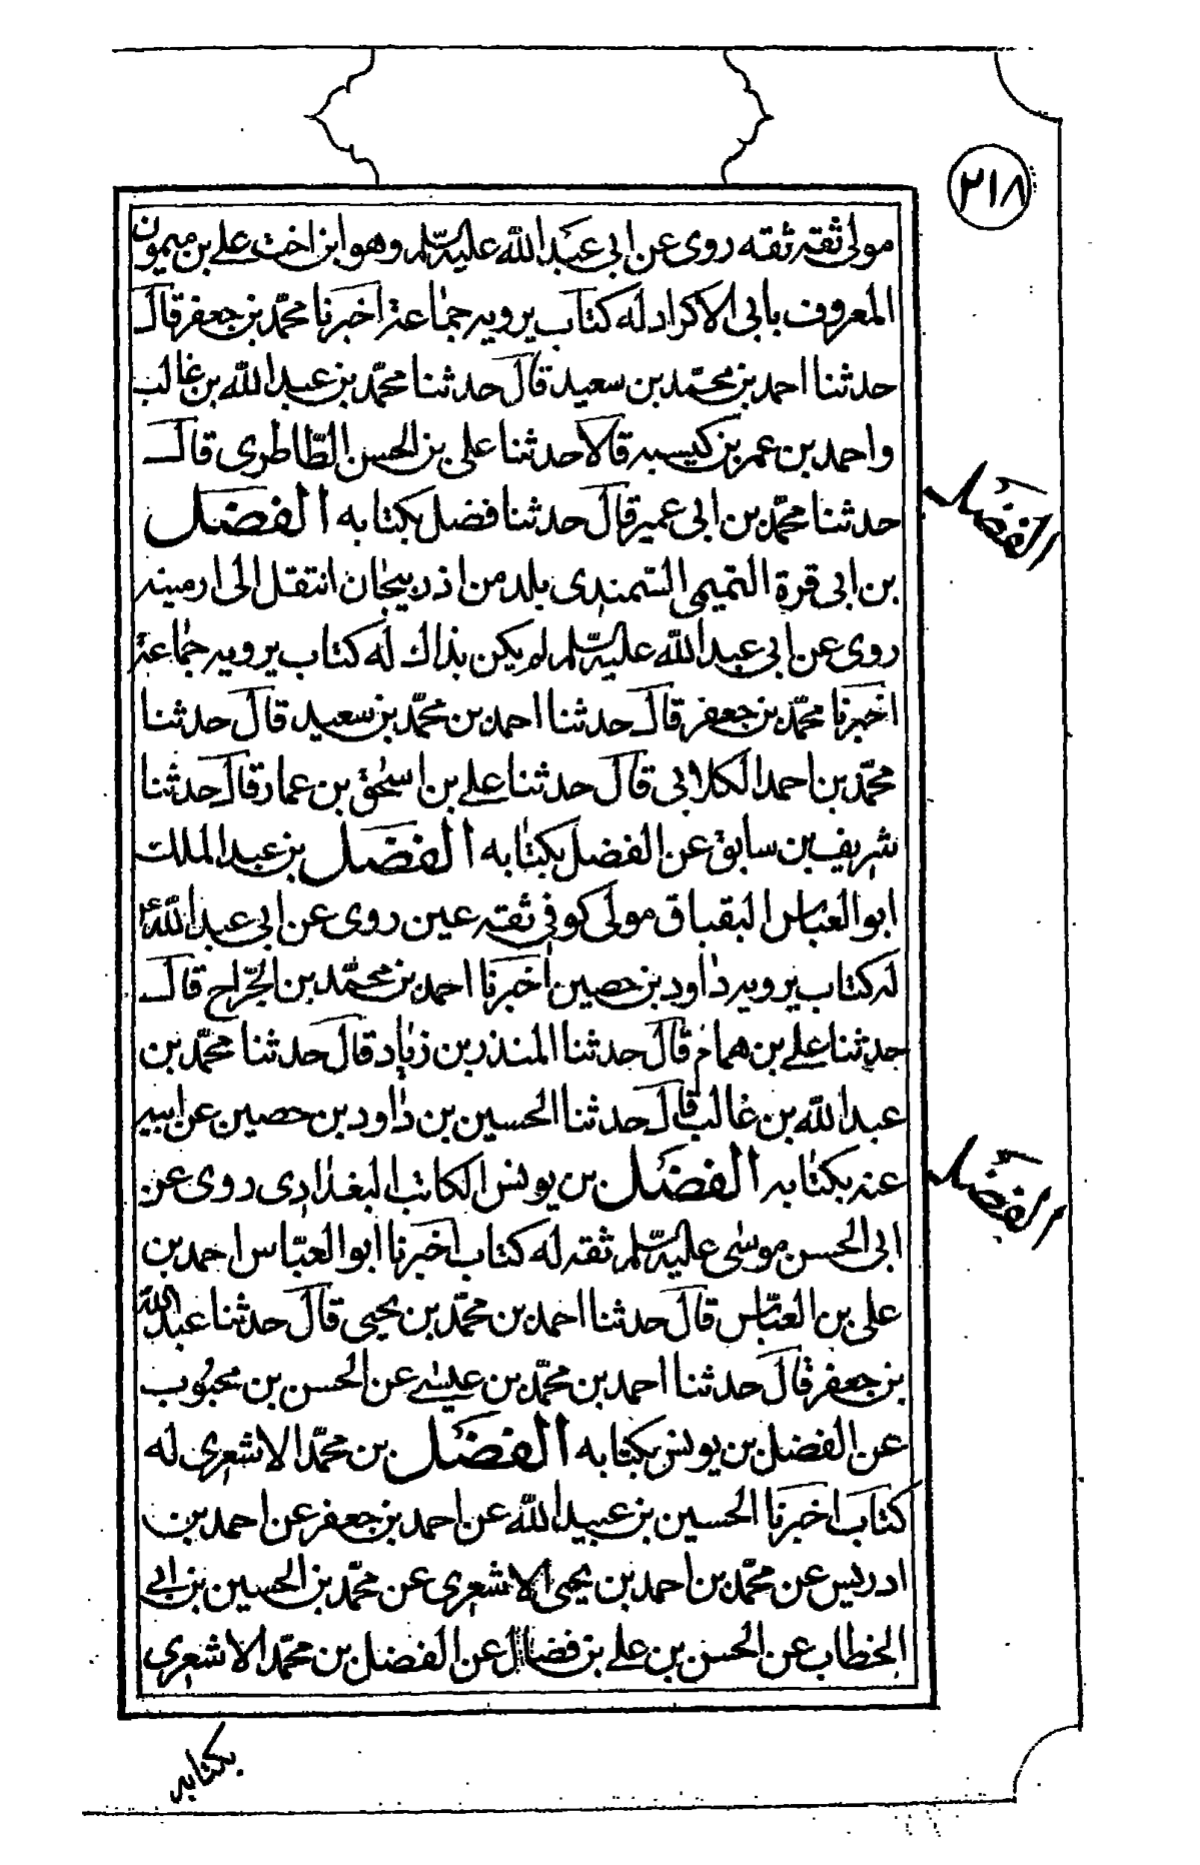 ٢١٨
مولى ثقة ثقه روى عن ابي عبد الله عليه السلم وهو ابن اخت علي بن ميمون
المعروف بابي الاكراد له كتاب يرويه جماعة اخبرنا محمد بن جعفر قال
حدثنا احمد بن محمد بن سعيد قال حدثنا محمد بن عبد الله بن غالب
واحمد بن عمر بن كيسبه قالا حدثنا علي بن الحسن الطاطري قال
حدثنا محمد بن ابي عمير قال حدثنا فضل بكتابه الفضل
الفضل
بن ابي قرة التميمي السمندي بلد من اذربيجان انتقل الى ارمينه
روى عن ابي عبد الله عليه السلم لم يكن بذاك له كتاب يرويه جماعة
اخبرنا محمد بن جعفر قال حدثنا احمد بن محمد بن سعيد قال حدثنا
محمد بن احمد الكلابي قال حدثنا علي بن اسحق بن عمار قال حدثنا
شريف بن سابق عن الفضل بكتابه الفضل بن عبد الملك
ابو العباس البقباق مولى كوفي ثقه عين روى عن ابي عبد الله ع
له كتاب يرويه داود بن حصين اخبرنا احمد بن محمد بن الجراح قال
حدثنا علي بن همام قال حدثنا المنذر بن زياد قال حدثنا محمد بن
عبد الله بن غالب قال حدثنا الحسين بن داود بن حصين عن ابيه
عنه بكتابه الفضل بن يونس الكاتب البغدادي روى عن
الفضل
ابي الحسن موسى عليه السلم ثقه له كتاب اخبرنا ابو العباس احمد بن
علي بن العباس قال حدثنا احمد بن محمد بن يحيى قال حدثنا عبد الله
بن جعفر قال حدثنا احمد بن محمد بن عيسى عن الحسن بن محبوب
عن الفضل بن يونس بكتابه الفضل بن محمد الاشعري له
كتاب اخبرنا الحسين بن عبيد الله عن احمد بن جعفر عن احمد بن
ادريس عن محمد بن احمد بن يحيى الاشعري عن محمد بن الحسين بن ابي
الخطاب عن الحسن بن علي بن فضال عن الفضل بن محمد الاشعري
بكتابه